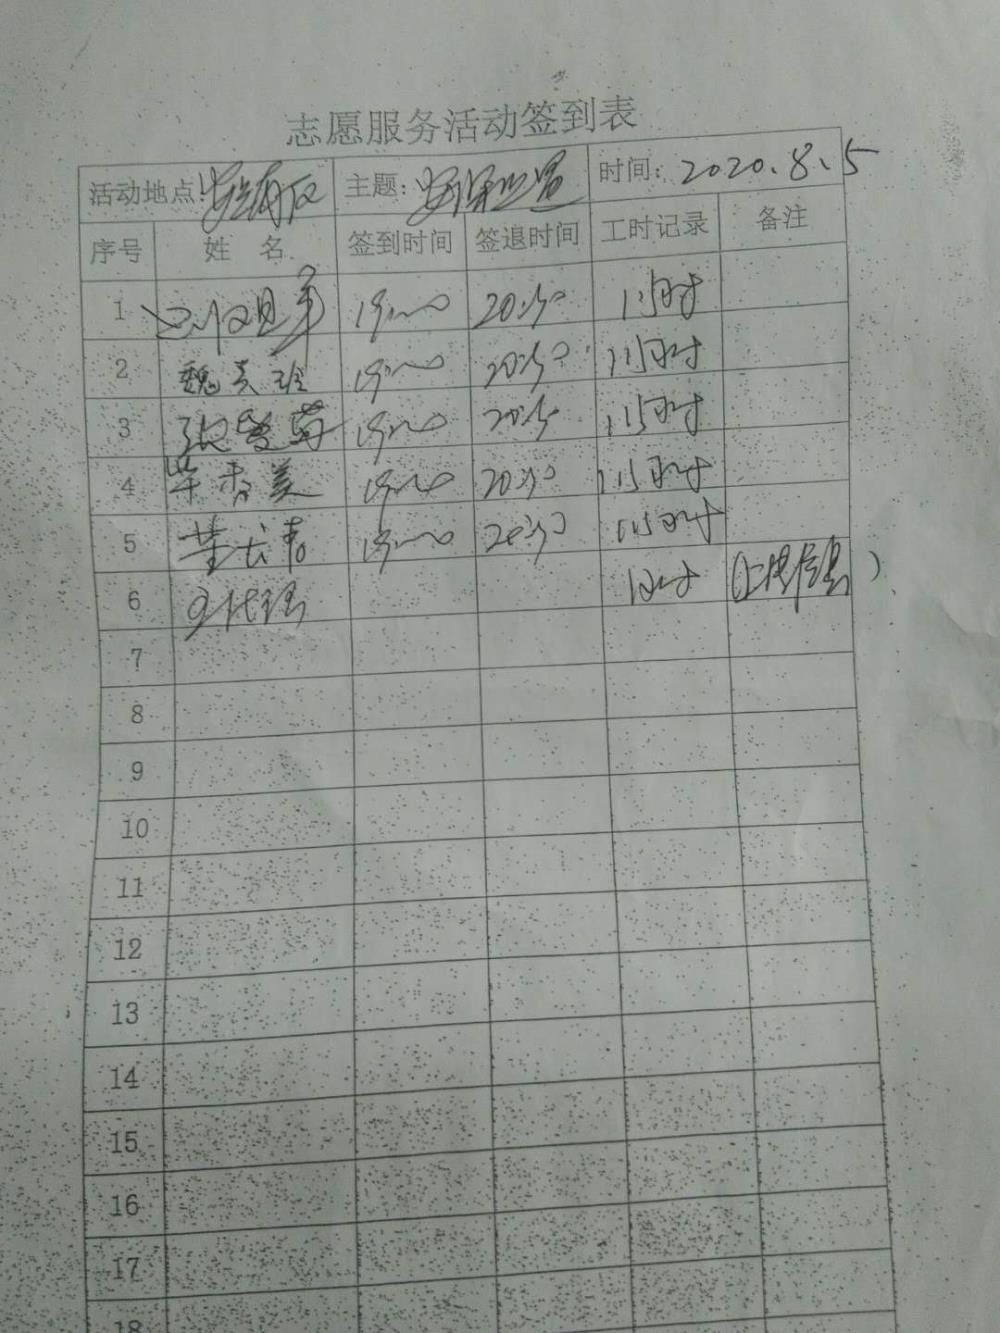 志愿服务活动签到表
活动地点: 主题: 时间: 2020.8.5
序号 姓名 签到时间 签退时间 工时记录 备注
1 19:00 20:30 1.5时
2 魏 玲 19:00 20:30 1.5时
3 张 19:00 20:30 1.5时
4 毕香美 19:00 20:30 1.5时
5 董长青 19:00 20:30 1.5时
6 1时 (上传信息)
7
8
9
10
11
12
13
14
15
16
17
18